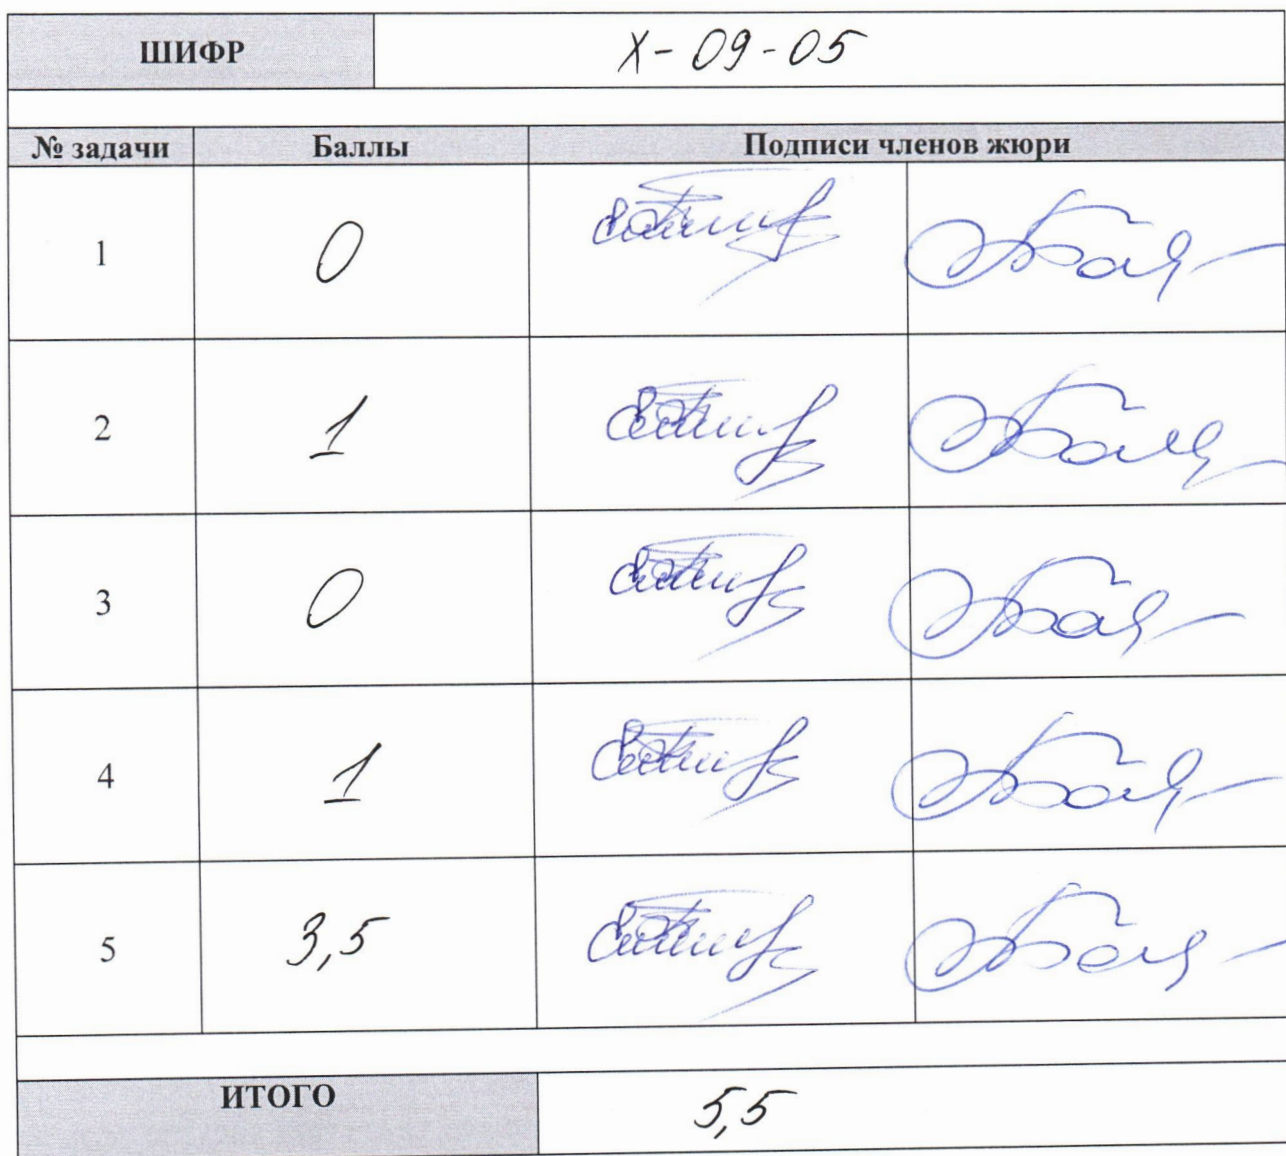 ШИФР X-09-05
№ задачи Баллы Подписи членов жюри
1 0
2 1
3 0
4 1
5 3,5
ИТОГО 5,5